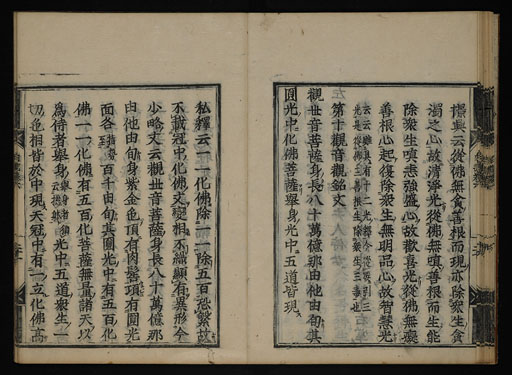 憬興云從佛無貪善根而現亦除衆生貪
濁之心故清淨光從佛無嗔善根而生能
除衆生嗔恚強盛心故歡喜光從佛無癡
善根心起復除衆生無明品心故智慧光
第十觀音觀銘文
觀世音菩薩身長八十萬億那由他由旬其
圓光中化佛菩薩舉身光中五道皆現
私釋云一一化佛除一一除五百恐繁故
不載冠中化佛文變相不編顯有異形今
少略文云觀世音菩薩身長八十萬億那
由他由旬身紫金色頂有肉髻項有圓光
面各百千由旬其圓光中有五百化
佛一一化佛有五百化菩薩無量諸天以
爲侍者舉身光中五道衆生一
切色相皆於中現天冠中有一立化佛高